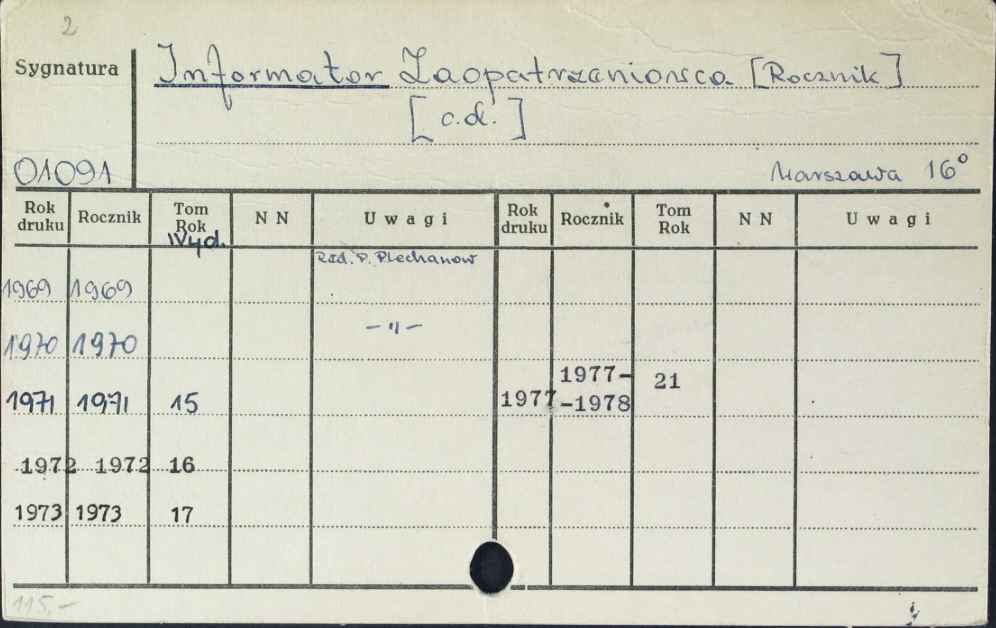 2
Sygnatura
Informator Zaopatrzeniowca [Rocznik]
[c.d.]
01091
Warszawa 16°
Rok druku Rocznik Tom Rok Wyd. N N Uwagi Rok druku Rocznik Tom Rok N N Uwagi
Red. P. Plechanow
1969 1969
1970 1970 -"-
1971 1971 15 1977 1977- -1978 21
1972 1972 16
1973 1973 17
115,-